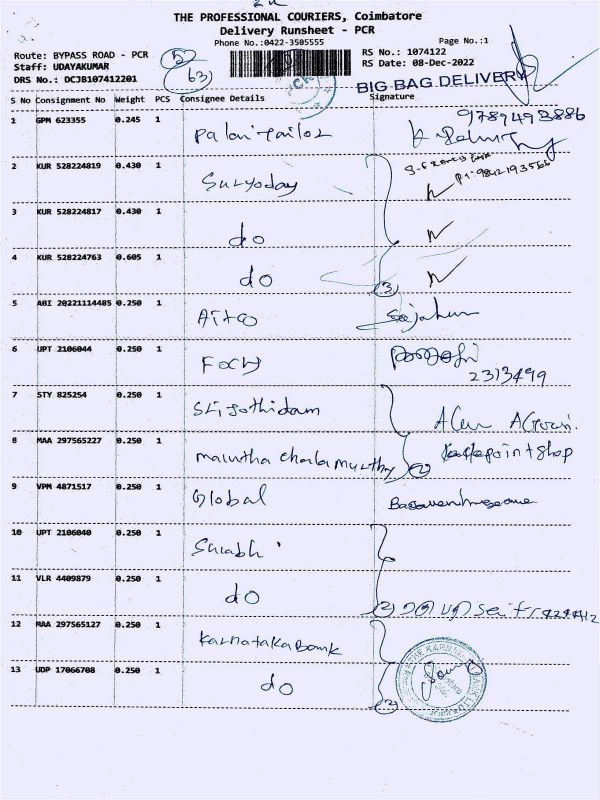 THE PROFESSIONAL COURIERS, Coimbatore
Delivery Runsheet - PCR
Phone No.:0422-3505555
Page No.:1
Route: BYPASS ROAD - PCR
Staff: UDAYAKUMAR
DRS No.: DCJB107412201
52
63
RS No.: 1074122
RS Date: 08-Dec-2022
BIG BAG DELIVERY
S No Consignment No Weight PCS Consignee Details Signature
1 GPM 623355 0.245 1 Palani Tailor 9789493886
2 KUR 528224819 0.430 1 Suryoday
3 KUR 528224817 0.430 1 do
4 KUR 528224763 0.605 1 do 3
5 ABI 20221114485 0.250 1
6 UPT 2106044 0.250 1 2313499
7 STY 825254 0.250 1 Sri Jothidam
8 MAA 297565227 0.250 1 marutha chalamurthy 2
9 VPM 4871517 0.250 1 Global
10 UPT 2106040 0.250 1 Surabhi
11 VLR 4409879 0.250 1 do 2
12 MAA 297565127 0.250 1 Karnataka Bank
13 UDP 17066708 0.250 1 do 2